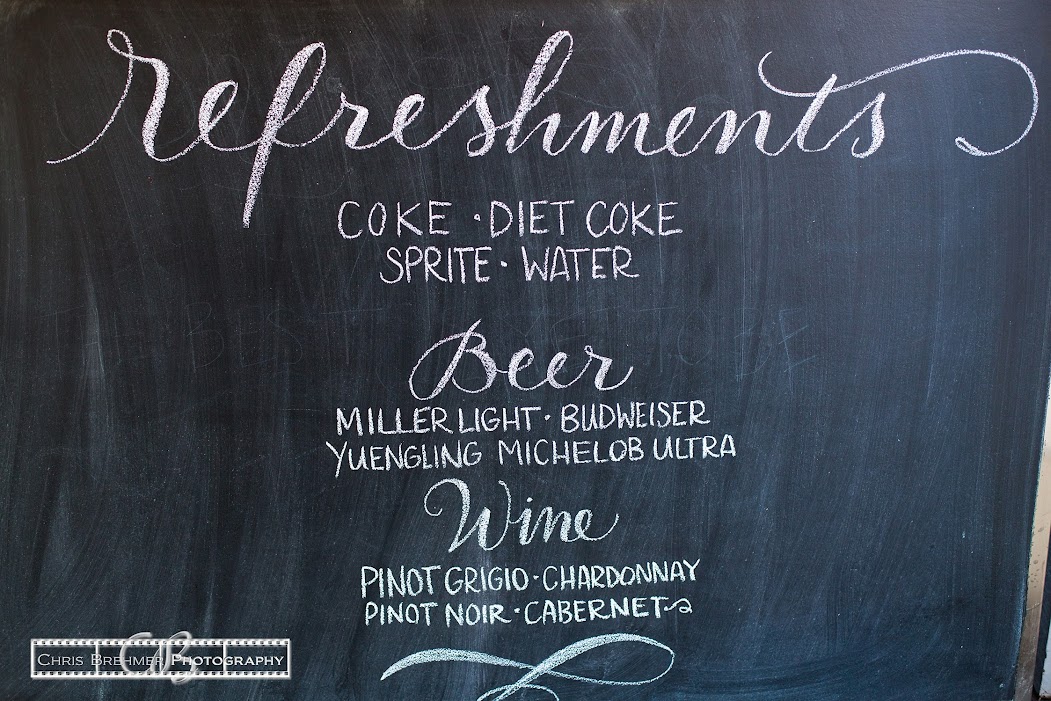 refreshments
COKE · DIET COKE
SPRITE · WATER
Beer
MILLER LIGHT · BUDWEISER
YUENGLING MICHELOB ULTRA
Wine
PINOT GRIGIO · CHARDONNAY
PINOT NOIR · CABERNET
CHRIS BREHMER PHOTOGRAPHY